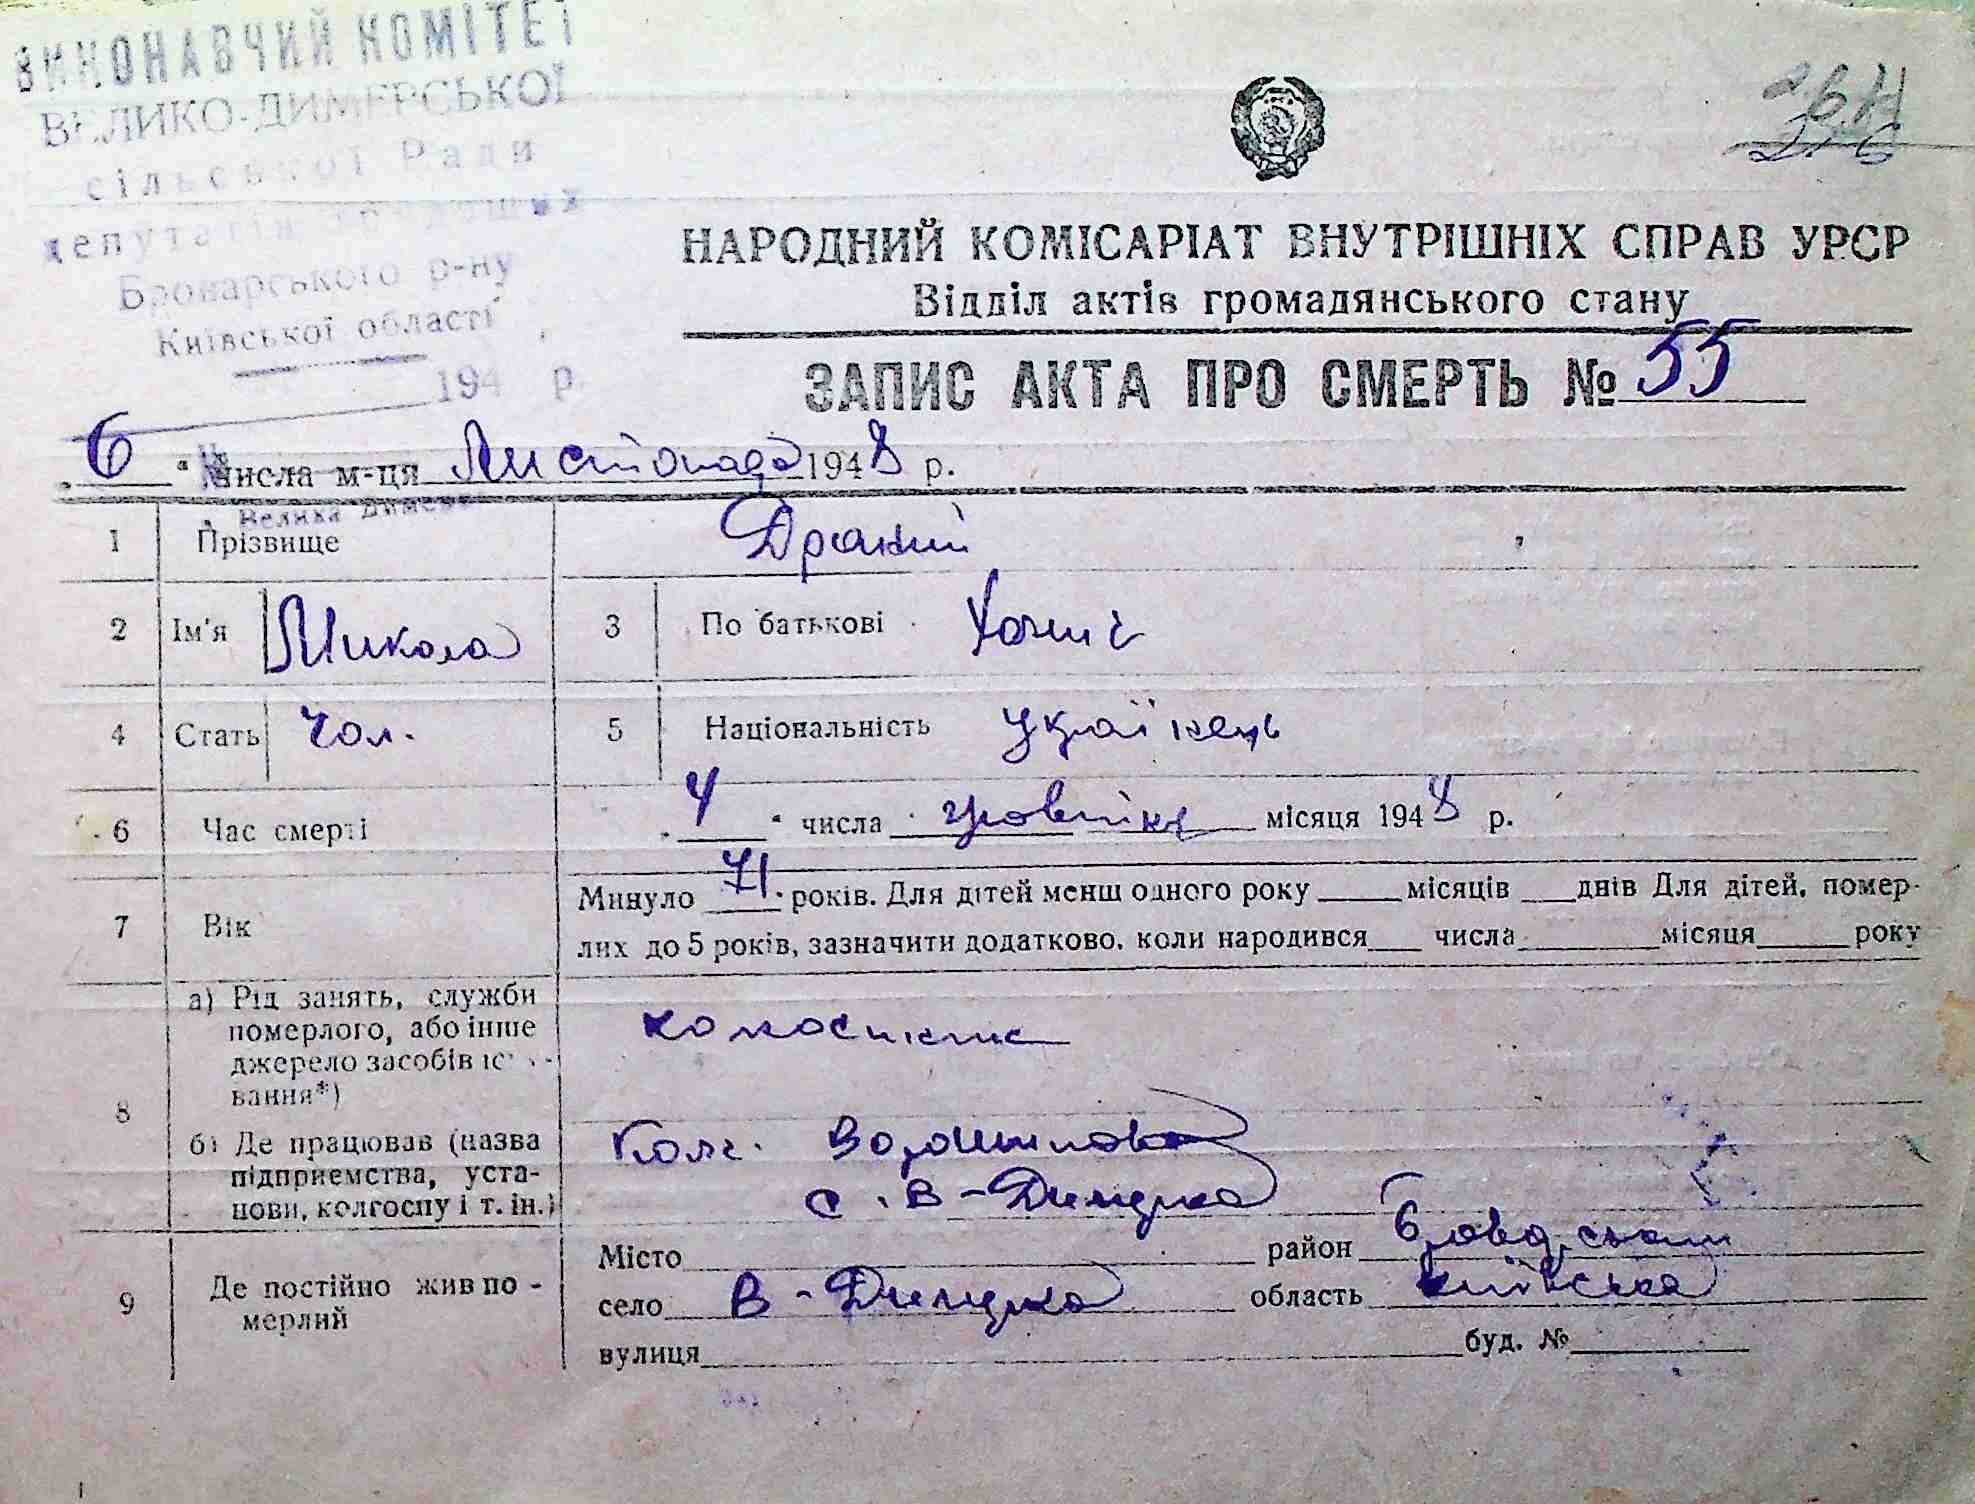 ВИКОНАВЧИЙ КОМІТЕТ
ВЕЛИКО-ДИМЕРСЬКОЇ
сільської Ради
депутатів трудящих
Броварського р-ну
Київської області
194 р.
НАРОДНИЙ КОМІСАРІАТ ВНУТРІШНІХ СПРАВ УРСР
Відділ актів громадянського стану
ЗАПИС АКТА ПРО СМЕРТЬ № 55
„ 6 “ числа м-ця Листопада 1948 р.
Велика Димерка
1 Прізвище
2 Ім'я Микола 3 По батькові
4 Стать Чол. 5 Національність Українець
6 Час смерті „ 4 “ числа місяця 1948 р.
7 Вік Минуло 71 років. Для дітей менш одного року місяців днів Для дітей, помер-
лих до 5 років, зазначити додатково, коли народився числа місяця року
8 а) Рід занять, служби
померлого, або інше
джерело засобів існу-
вання*)
б) Де працював (назва
підприємства, уста-
нови, колгоспу і т. ін.)
Колг. Ворошилова
с. В-Димерка
9 Де постійно жив по-
мерлий
Місто район Броварський
село В-Димерка область Київська
вулиця буд. №